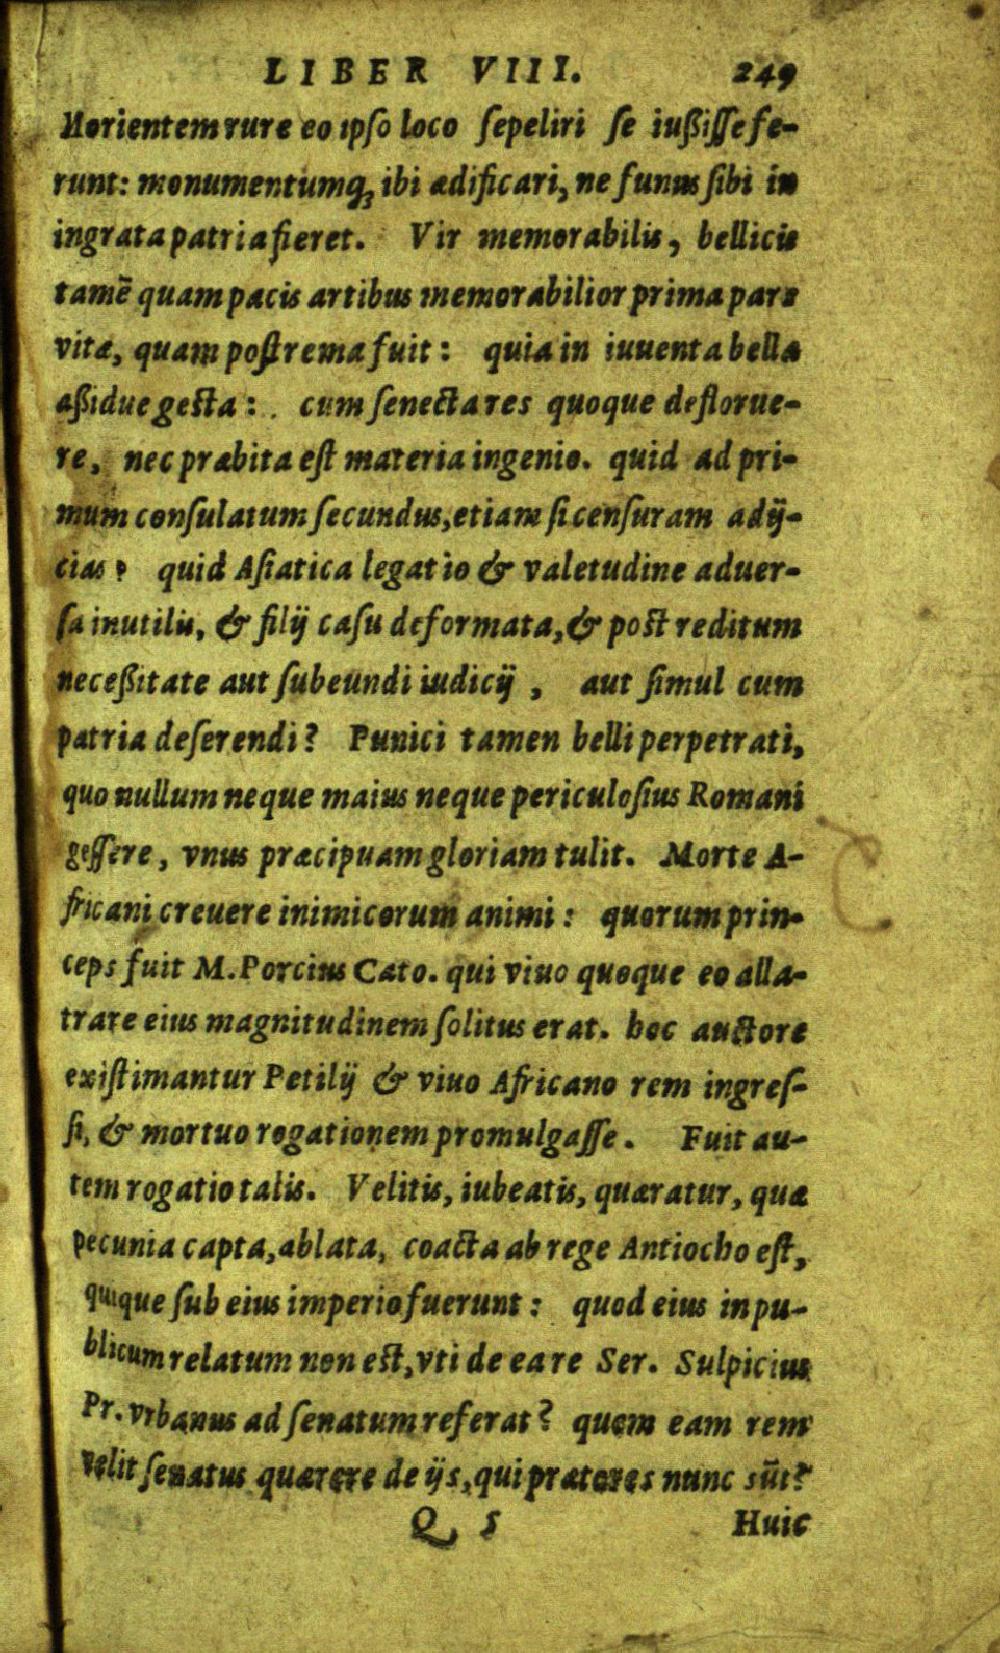 LIBER VIII. 249
Morientem rure eo ipso loco sepeliri se iußisse fe-
runt: monumentumq́; ibi ædificari, ne funus sibi in
ingrata patria fieret. Vir memorabilis, bellicis
tamē quam pacis artibus memorabilior prima pars
vitæ, quam postrema fuit: quia in iuuenta bella
aßidue gesta: cum senecta res quoque deflorue-
re, nec præbita est materia ingenio. quid ad pri-
mum consulatum secundus, etiam si censuram adij-
cias? quid Asiatica legatio & valetudine aduer-
sa inutilis, & filij casu deformata, & post reditum
neceßitate aut subeundi iudicij, aut simul cum
patria deserendi? Punici tamen belli perpetrati,
quo nullum neque maius neque periculosius Romani
gessere, vnus præcipuam gloriam tulit. Morte A-
fricani creuere inimicorum animi: quorum prin-
ceps fuit M. Porcius Cato. qui viuo quoque eo alla-
trare eius magnitudinem solitus erat. hoc auctore
existimantur Petilij & viuo Africano rem ingres-
si, & mortuo rogationem promulgasse. Fuit au-
tem rogatio talis. Velitis, iubeatis, quæratur, quæ
pecunia capta, ablata, coacta ab rege Antiocho est,
quique sub eius imperio fuerunt: quod eius in pu-
blicum relatum non est, vti de ea re Ser. Sulpicius
Pr. vrbanus ad senatum referat? quem eam rem
velit senatus quærere de ijs, qui prætores nunc sūt?
Q 5 Huic